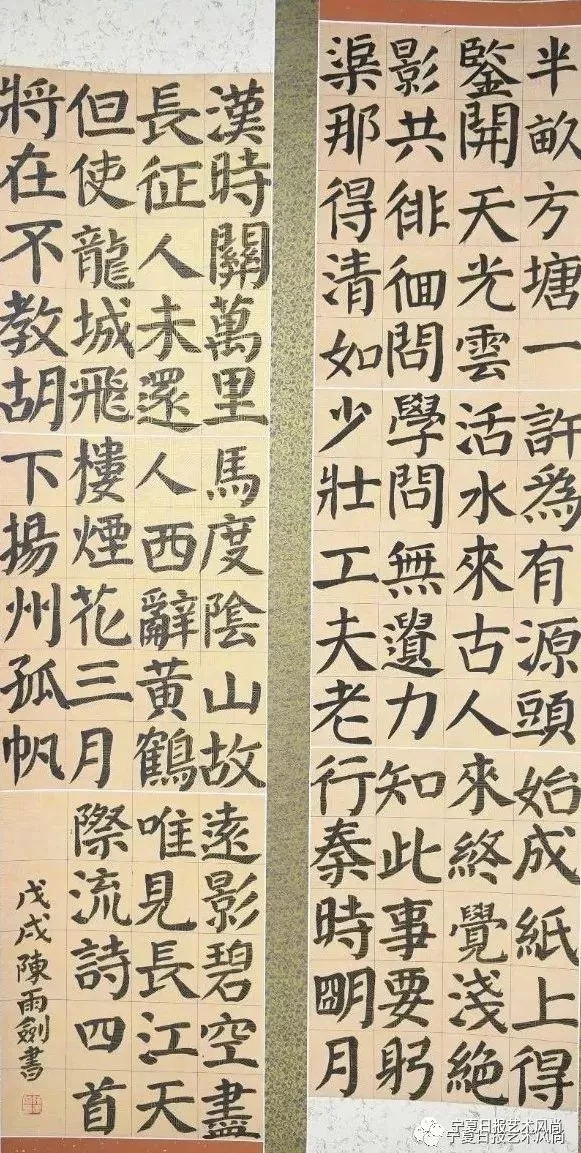 半畝方塘一
鑒開天光雲
影共徘徊問
渠那得清如
許爲有源頭
活水來古人
學問無遺力
少壯工夫老
始成紙上得
來終覺淺絕
知此事要躬
行秦時朙月
漢時關萬里
長征人未還
但使龍城飛
將在不教胡
馬度陰山故
人西辭黃鶴
樓煙花三月
下揚州孤帆
遠影碧空盡
唯見長江天
際流詩四首
戊戌陳雨劍書
宁夏日报艺术风尚
宁夏日报艺术风尚